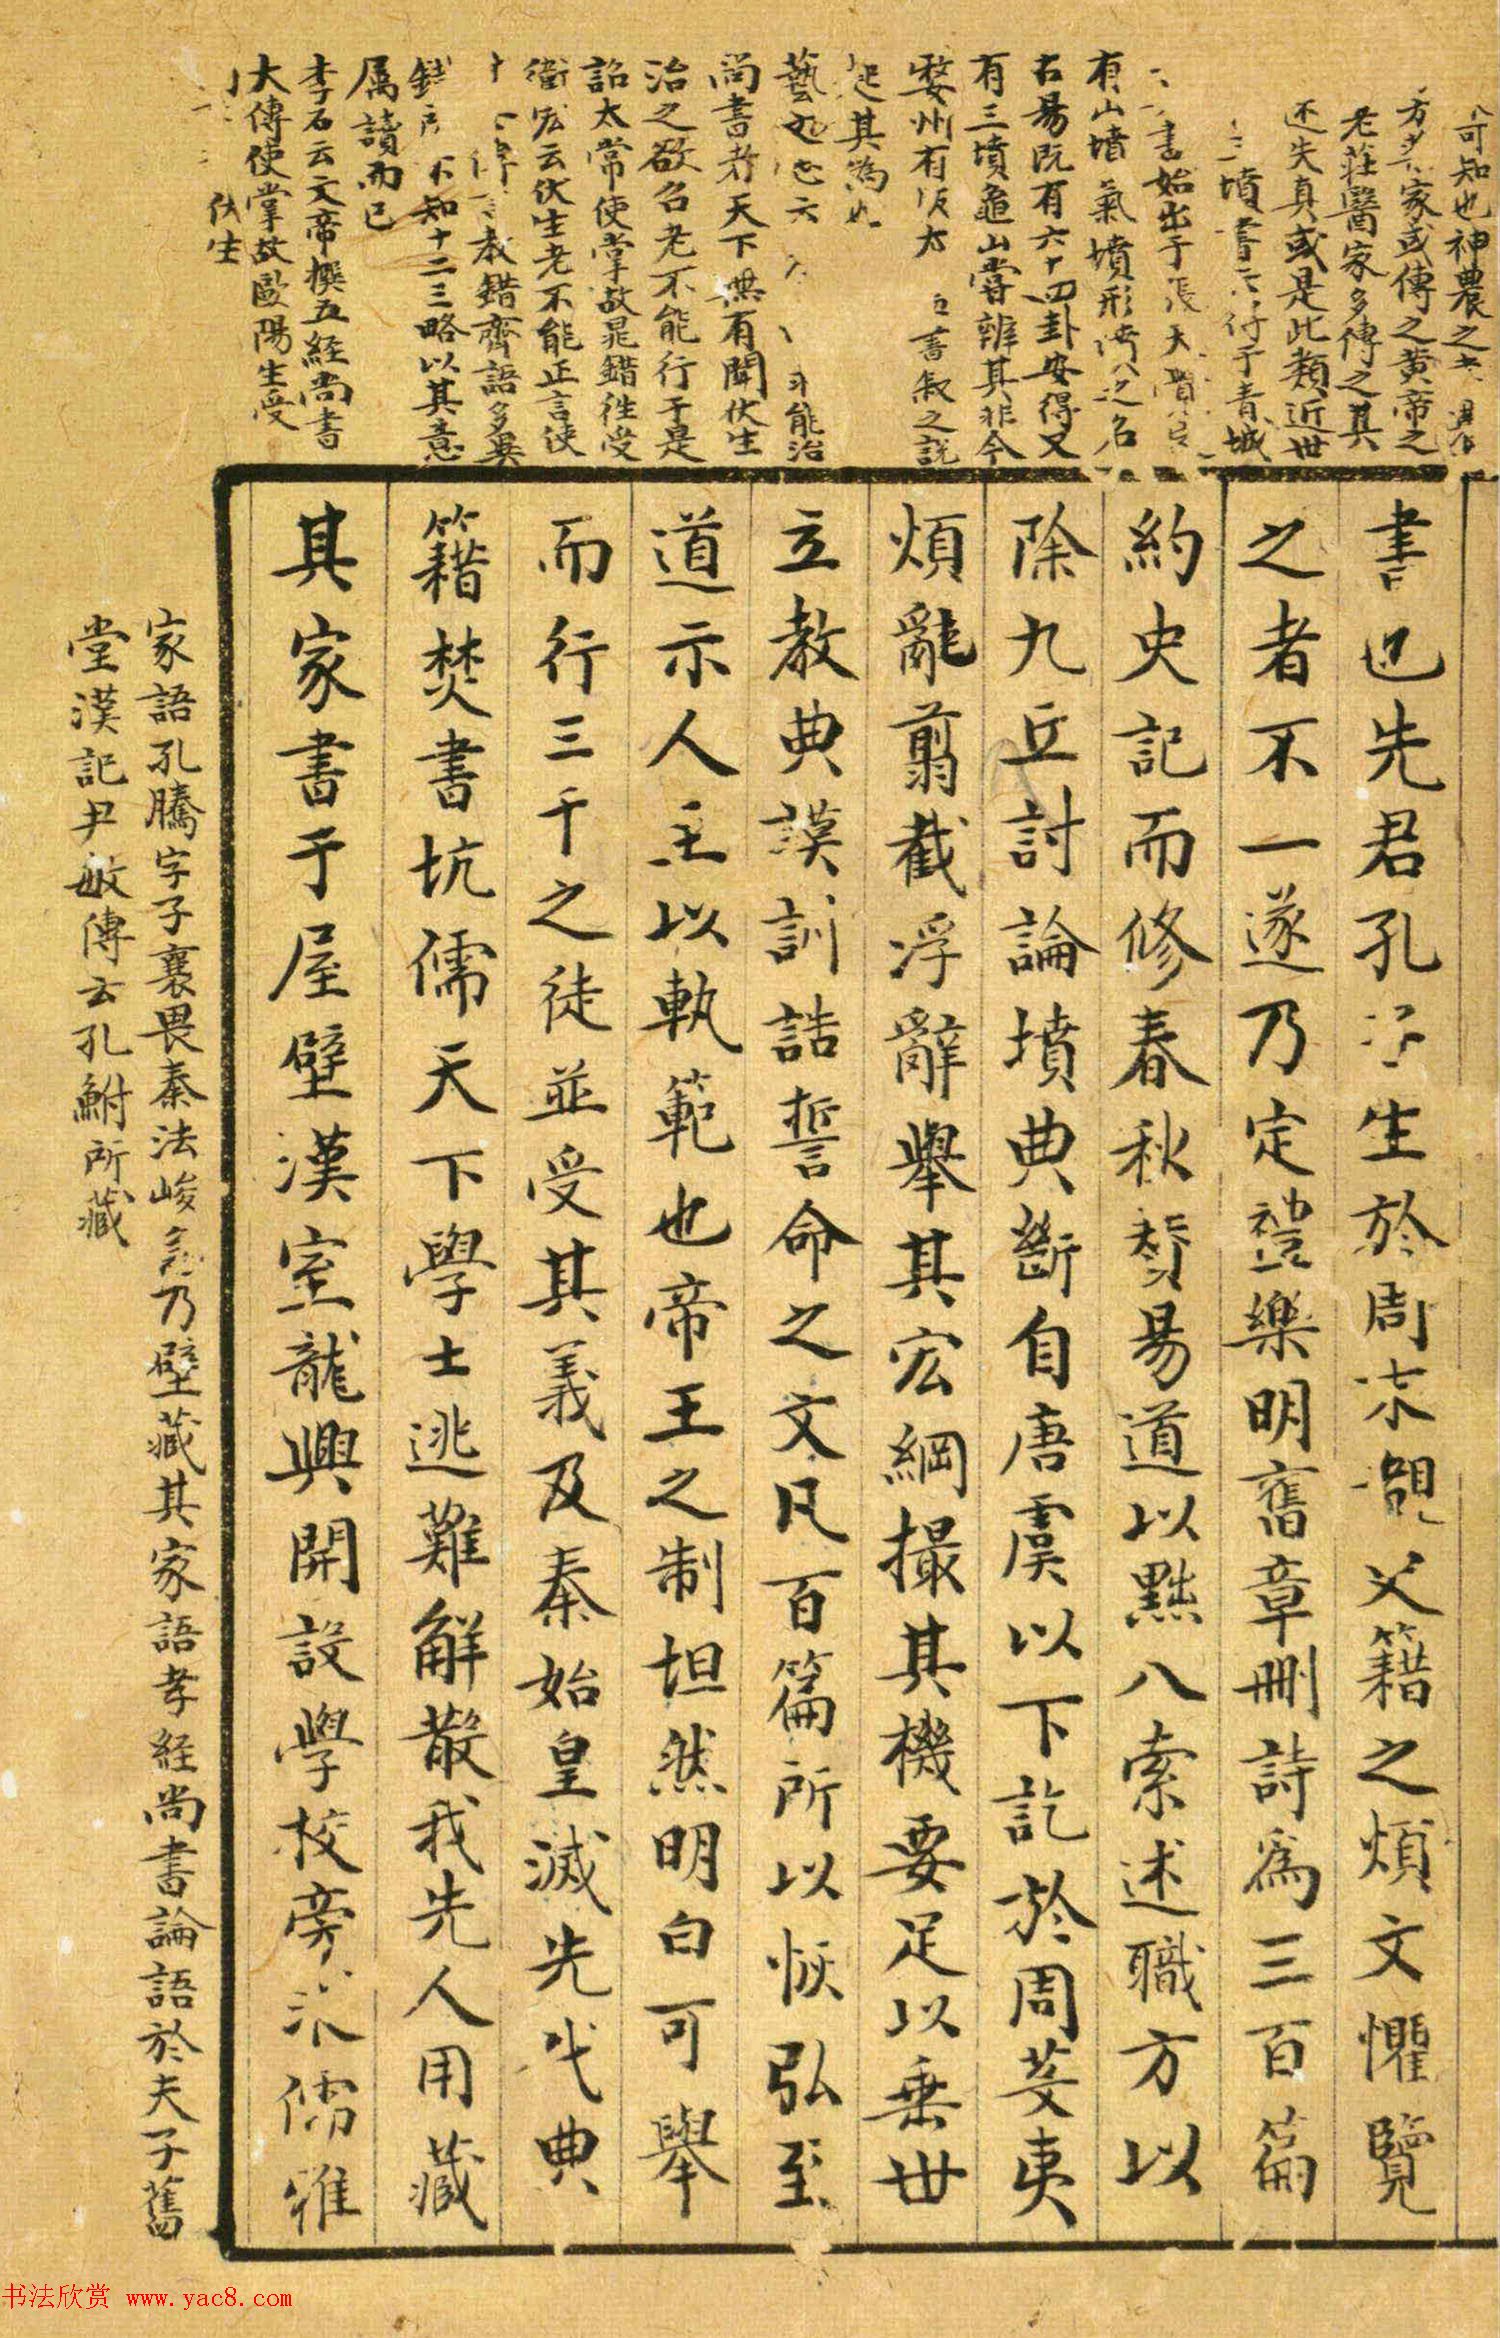 可知也神農之
方家或傳之黃帝之
老莊醫家多傳之其
还失真或是此類近世
墳書云行于青城
書始出于張天
有山墳氣墳形墳之名
右易既有六十四卦安得又
有三墳龜山嘗辨其非今
婺州有版本書叙之説
起其為也
藝也能治
尚書者天下無有聞伏生
治之欲召老不能行于是
詔太常使掌故晁錯徃受
衛宏云伏生老不能正言使
錯齊語多異
不知十二三略以其意
属讀而已
李石云文帝撰五經尚書
大傳使掌故歐陽生受
伏生
書也先君孔生於周末覩父籍之煩文懼覽
之者不一遂乃定禮樂明舊章刪詩為三百篇
約史記而修春秋賛易道以黜八索述職方以
除九丘討論墳典斷自唐虞以下訖於周芟夷
煩亂翦截浮辭舉其宏綱撮其機要足以垂世
立教典謨訓誥誓命之文凡百篇所以恢弘至
道示人主以軌範也帝王之制坦然明白可舉
而行三千之徒並受其義及秦始皇滅先代典
籍焚書坑儒天下學士逃難解散我先人用藏
其家書于屋壁漢室龍興開設學校旁求儒雅
家語孔騰字子襄畏秦法峻急乃壁藏其家語孝経尚書論語於夫子舊
堂漢記尹敏傳云孔鮒所藏
书法欣赏 www.yac8.com